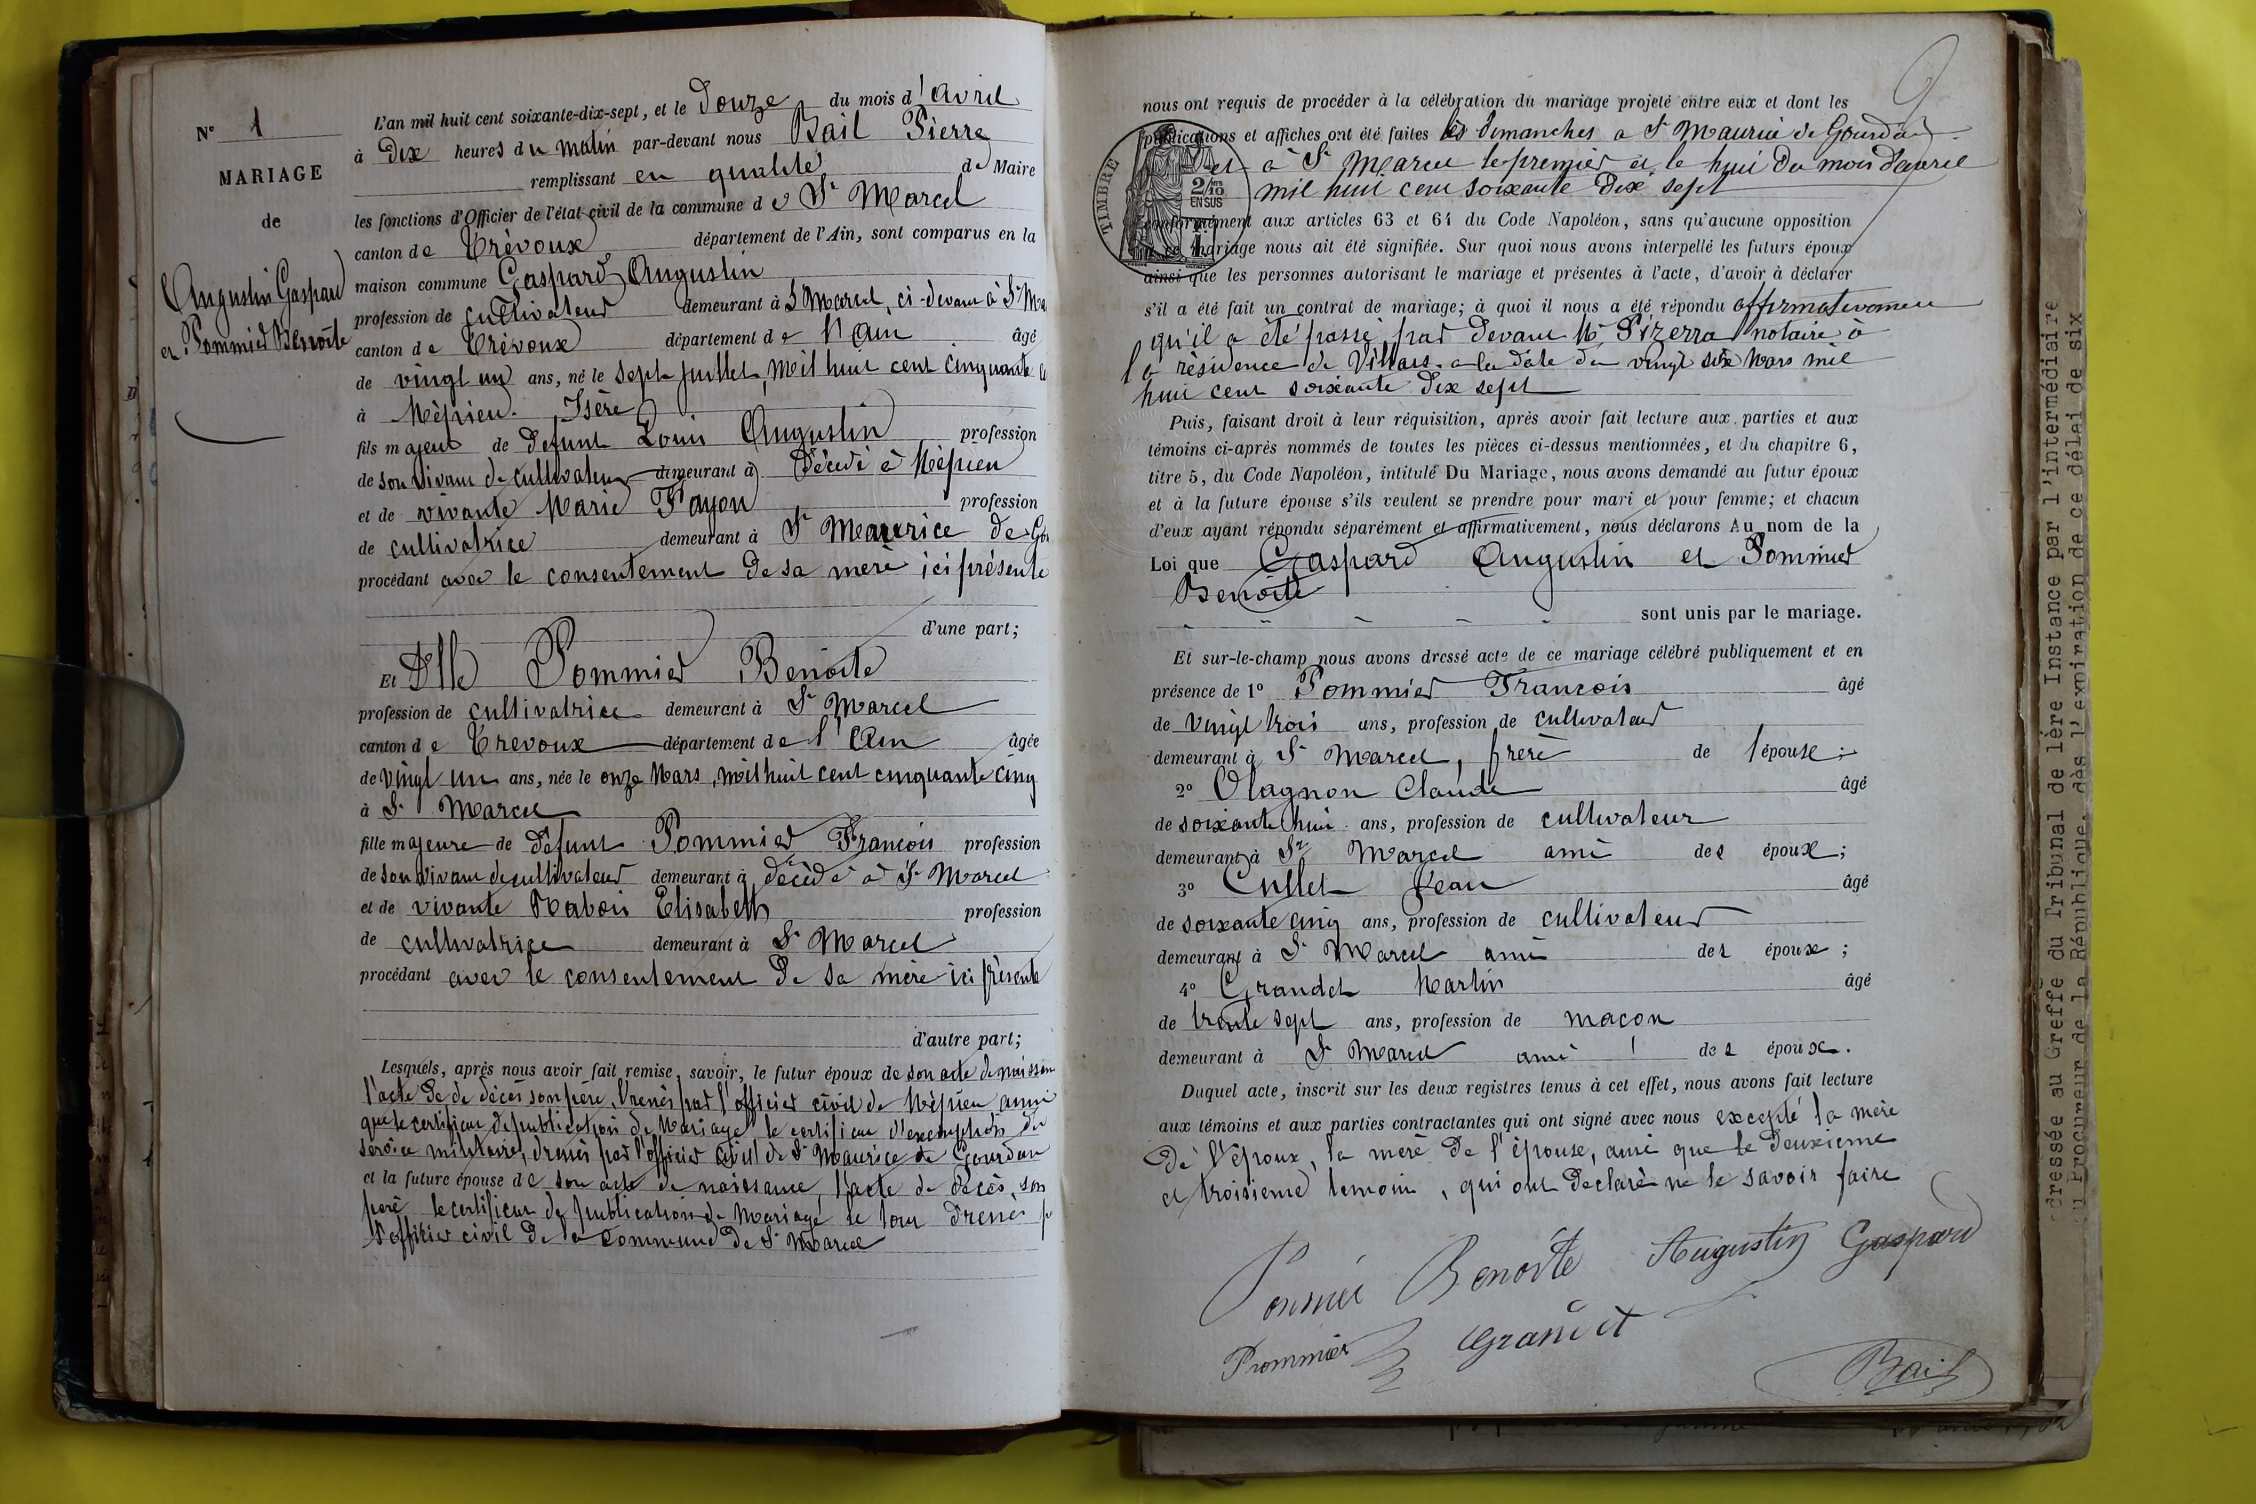 N° 1
MARIAGE
de
Augustin Gaspard
et Pommier Benoîte
L'an mil huit cent soixante-dix-sept, et le Douze du mois d'avril
à Dix heures du matin par-devant nous Bail Pierre
remplissant en qualité de Maire
les fonctions d'Officier de l'état civil de la commune de St Marcel
canton de Trévoux département de l'Ain, sont comparus en la
maison commune Gaspard Augustin
profession de cultivateur demeurant à St Marcel, ci-devant à St Ma
canton de Trévoux département de l'Ain âgé
de vingt un ans, né le sept Juillet, mil huit cent cinquante
à Mépieu. Isère
fils majeur de defunt Louis Augustin profession
de son vivant de cultivateur demeurant à Décédé à Mépieu
et de vivante Marie Fayon profession
de cultivatrice demeurant à St Maurice de Go
procédant avec le consentement de sa mère ici présente
d'une part;
Et Dlle Pommier Benoîte
profession de cultivatrice demeurant à St Marcel
canton de Trevoux département de l'Ain âgée
de vingt un ans, née le onze Mars, mil huit cent cinquante cinq
à St Marcel
fille majeure de défunt Pommier François profession
de son vivant de cultivateur demeurant à décédé à St Marcel
et de vivante Rabois Elisabeth profession
de cultivatrice demeurant à St Marcel
procédant avec le consentement de sa mère ici présente
d'autre part;
Lesquels, après nous avoir fait remise, savoir, le futur époux de son acte de naissan
l'acte de de décès son père, drenés par l'officier civil de Mépieu ainsi
que le certificat de publication de Mariage le certificat d'exemption du
service militaire, drenés par l'officier civil de St Maurice de Gourdan
et la future épouse de son acte de naissance, l'acte de décès, son
père le certificat de publication de Mariage le tout drenés p
l'officier civil de la commune de St Marcel
2
nous ont requis de procéder à la célébration du mariage projeté entre eux et dont les
publications et affiches ont été faites les dimanches a St Maurice de Gourdan
et à St Marcel le premier et le huit du mois d'avril
mil huit cent soixante dix sept
conformément aux articles 63 et 64 du Code Napoléon, sans qu'aucune opposition
à ce mariage nous ait été signifiée. Sur quoi nous avons interpellé les futurs époux
ainsi que les personnes autorisant le mariage et présentes à l'acte, d'avoir à déclarer
s'il a été fait un contrat de mariage; à quoi il nous a été répondu affirmativement
qu'il a été passé par devant Me Pizerra notaire à
la résidence de Villars a la date du vingt six Mars mil
huit cent soixante dix sept
TIMBRE
2/10 EN SUS
Puis, faisant droit à leur réquisition, après avoir fait lecture aux parties et aux
témoins ci-après nommés de toutes les pièces ci-dessus mentionnées, et du chapitre 6,
titre 5, du Code Napoléon, intitulé Du Mariage, nous avons demandé au futur époux
et à la future épouse s'ils veulent se prendre pour mari et pour femme; et chacun
d'eux ayant répondu séparément et affirmativement, nous déclarons Au nom de la
Loi que Gaspard Augustin et Pommier
Benoîte
sont unis par le mariage.
Et sur-le-champ nous avons dressé acte de ce mariage célébré publiquement et en
présence de 1° Pommier François âgé
de vingt trois ans, profession de cultivateur
demeurant à St Marcel, frère de l'épouse;
2° Olagnon Claude âgé
de soixante huit ans, profession de cultivateur
demeurant à St Marcel ami des époux;
3° Cullet Jean âgé
de soixante cinq ans, profession de cultivateur
demeurant à St Marcel ami des époux;
4° Grandet Martin âgé
de trente sept ans, profession de macon
demeurant à St Marcel ami des époux.
Duquel acte, inscrit sur les deux registres tenus à cet effet, nous avons fait lecture
aux témoins et aux parties contractantes qui ont signé avec nous excepté la mère
de l'époux, la mère de l'épouse, ainsi que le deuxieme
et troisieme temoin, qui ont declaré ne le savoir faire
Pommier Benoîte Augustin Gaspard
Prommier Grandet
Bail
dressée au Greffe du Tribunal de 1ère Instance par l'intermédiaire
du Procureur de la République, dès l'expiration de ce délai de six